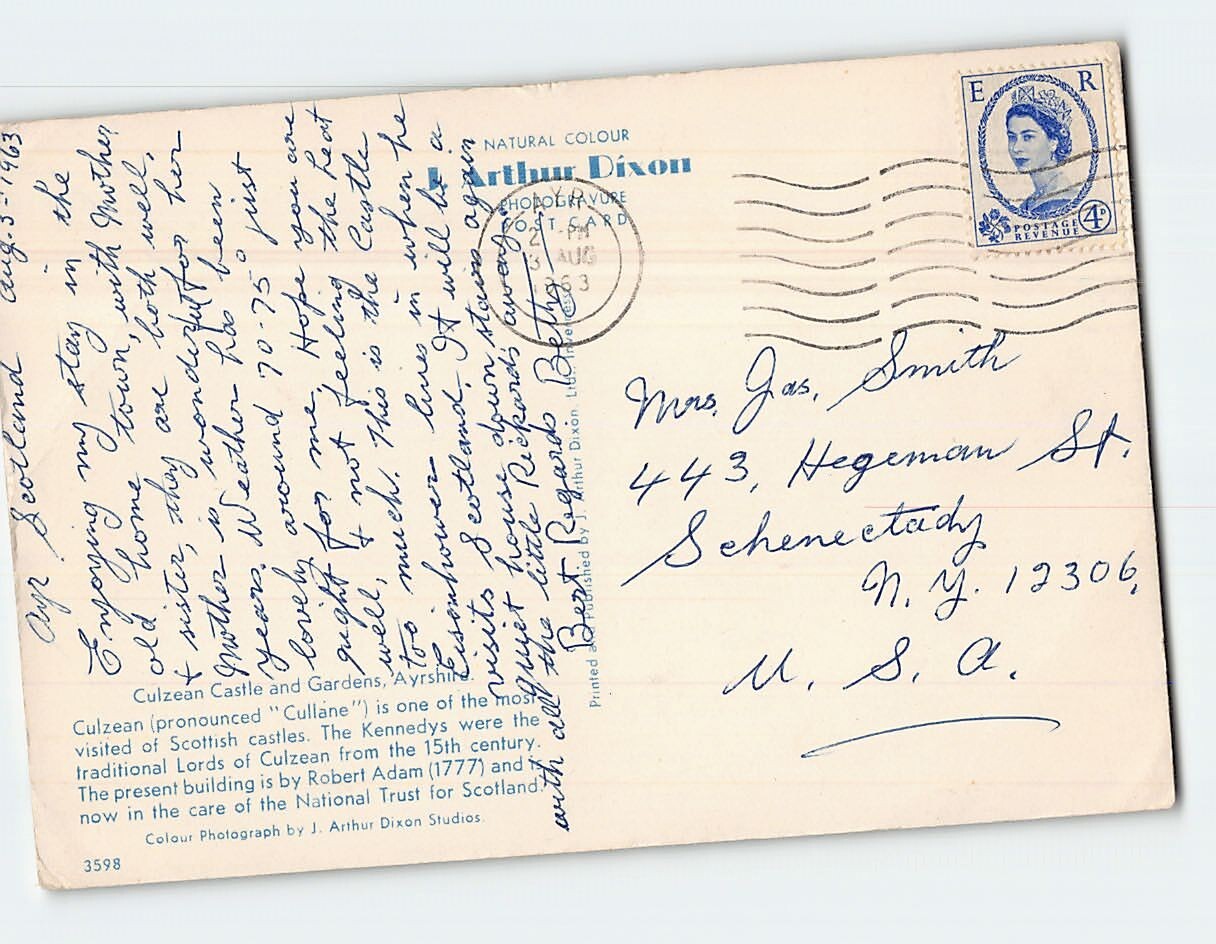 Ayr Scotland Aug. 3-1963
Enjoying my stay in the
old home town, with Mother
& sister, they are both well.
Mother is wonderful for her
years. Weather has been
lovely around 70-75° just
right for me. Hope you are
well, & not feeling the heat
too much. This is the Castle
Eisenhower lives in when he
visits Scotland. It will be a
quiet house down stairs again
with all the little Rickards away.
Best Regards Bertha
NATURAL COLOUR
J. Arthur Dixon
PHOTOGRAVURE
POST CARD
AYR
2 - PM
3 AUG
1963
E R
POSTAGE
REVENUE
4D
Mrs. Jas. Smith
443, Hegeman St.
Schenectady
N. Y. 12306,
U. S. A.
Printed and Published by J. Arthur Dixon. Ltd. Inverness
Culzean Castle and Gardens, Ayrshire.
Culzean (pronounced "Cullane") is one of the most
visited of Scottish castles. The Kennedys were the
traditional Lords of Culzean from the 15th century.
The present building is by Robert Adam (1777) and is
now in the care of the National Trust for Scotland.
Colour Photograph by J. Arthur Dixon Studios.
3598